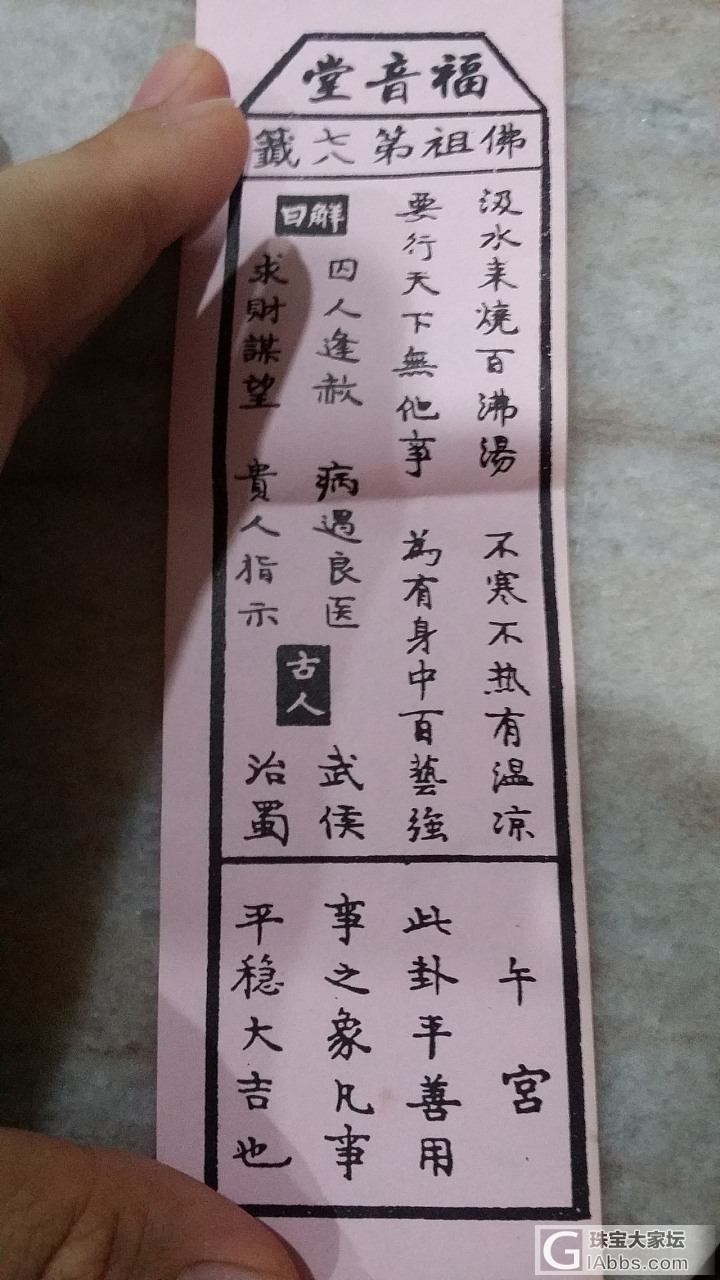 福音堂
佛祖第七八籤
汲水来燒百沸湯 不寒不热有温凉
要行天下無他事 為有身中百藝強
解曰
囚人逢赦 病遇良医
求財謀望 貴人指示
古人
武侯
治蜀
午宮
此卦平善用
事之象凡事
平穏大吉也
G 珠宝大家坛
IAbbs.com